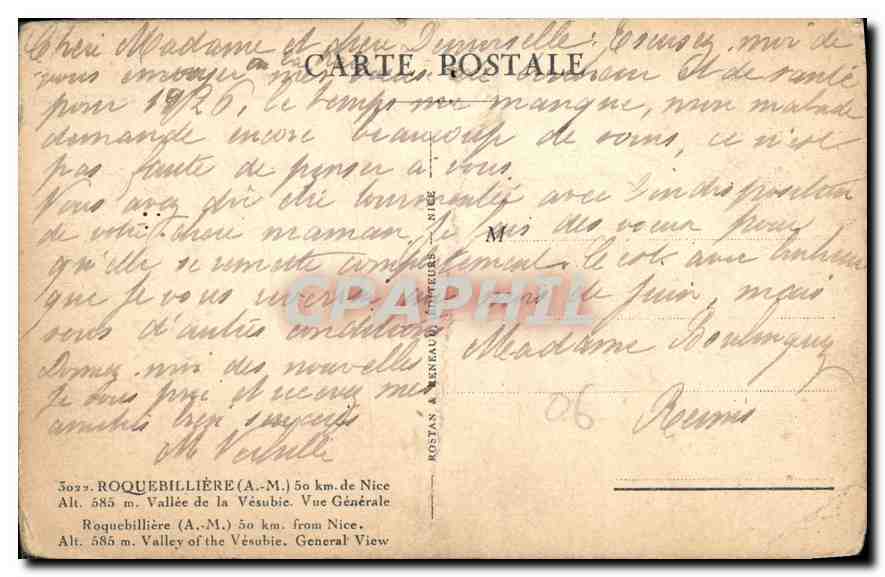 Chère Madame et chère Demoiselle, Excusez moi de
CARTE POSTALE
vous envoyer mes vœux de bonheur et de santé
pour 1926, le temps me manque, mon malade
demande encore beaucoup de soins, ce n'est
pas faute de penser à vous
Vous avez dû être tourmentée avec l'indisposition
de votre chère maman, je fais des vœux pour
M
qu'elle se remette complètement, le est avec bonheur
que je vous reverrai au mois de Juin, mais
sous d'autres conditions
CPAPHIL
Donnez moi des nouvelles
Je vous prie et recevez mes
amitiés bien sincères
M
Madame
Reims
06
ROSTAN & MENEAUD, ÉDITEURS — NICE
3022. ROQUEBILLIÈRE (A.-M.) 50 km. de Nice
Alt. 585 m. Vallée de la Vésubie. Vue Générale
Roquebillière (A.-M.) 50 km. from Nice.
Alt. 585 m. Valley of the Vésubie. General View